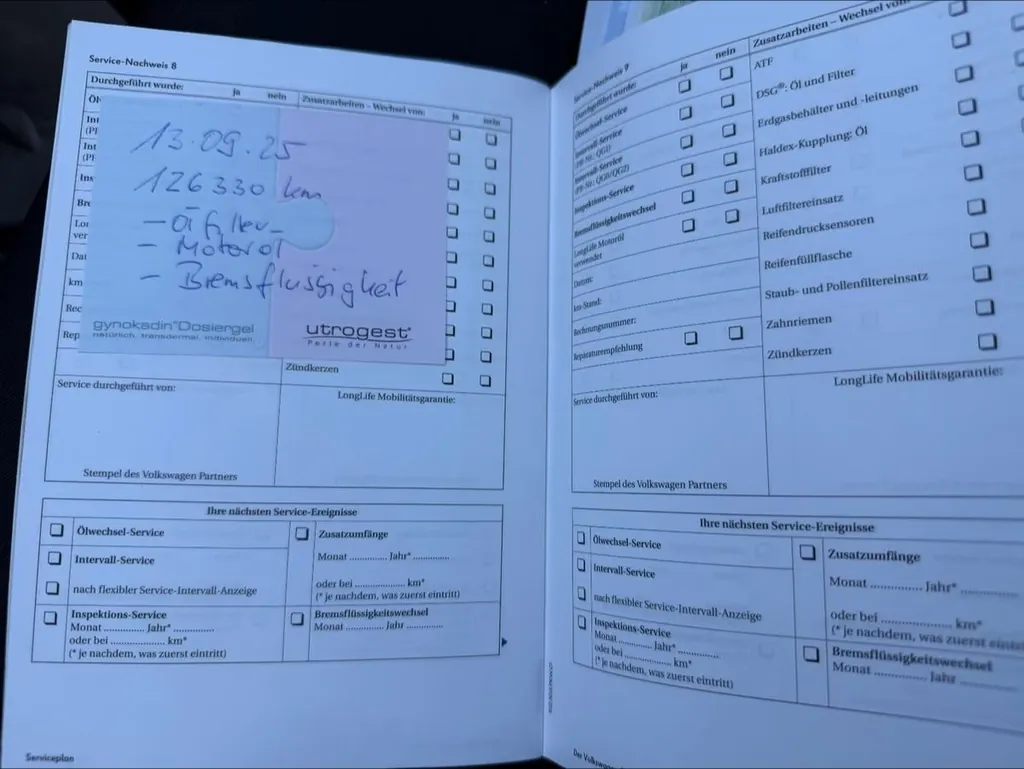 Service-Nachweis 8
Durchgeführt wurde: ja nein Zusatzarbeiten – Wechsel von: ja nein
Öl
Int
(PR
Int
(PR
Ins
Bre
Lon
ver
Dat
km
Rec
Rep
13.09.25
126330 km
– Ölfilter
– Motoröl
– Bremsflüssigkeit
gynokadin® Dosiergel
natürlich. transdermal. individuell.
utrogest®
Perle der Natur
Zündkerzen
Service durchgeführt von:
LongLife Mobilitätsgarantie:
Stempel des Volkswagen Partners
Ihre nächsten Service-Ereignisse
Ölwechsel-Service
Intervall-Service
nach flexibler Service-Intervall-Anzeige
Inspektions-Service
Monat .............. Jahr* ..............
oder bei ..................... km*
(* je nachdem, was zuerst eintritt)
Zusatzumfänge
Monat ............. Jahr* .............
oder bei ..................... km*
(* je nachdem, was zuerst eintritt)
Bremsflüssigkeitswechsel
Monat ............. Jahr .............
Serviceplan
Service-Nachweis 9
Durchgeführt wurde: ja nein Zusatzarbeiten – Wechsel von:
Ölwechsel-Service
Intervall-Service
(PR-Nr.: QG1)
Intervall-Service
(PR-Nr.: QG0/QG2)
Inspektions-Service
Bremsflüssigkeitswechsel
LongLife Motoröl
verwendet
Datum:
km-Stand:
Rechnungsnummer:
Reparaturempfehlung
ATF
DSG®: Öl und Filter
Erdgasbehälter und -leitungen
Haldex-Kupplung: Öl
Kraftstofffilter
Luftfiltereinsatz
Reifendrucksensoren
Reifenfüllflasche
Staub- und Pollenfiltereinsatz
Zahnriemen
Zündkerzen
Service durchgeführt von:
LongLife Mobilitätsgarantie:
Stempel des Volkswagen Partners
Ihre nächsten Service-Ereignisse
Ölwechsel-Service
Intervall-Service
nach flexibler Service-Intervall-Anzeige
Inspektions-Service
Monat .............. Jahr* ..............
oder bei ..................... km*
(* je nachdem, was zuerst eintritt)
Zusatzumfänge
Monat ............. Jahr* .............
oder bei ..................... km*
(* je nachdem, was zuerst eintritt)
Bremsflüssigkeitswechsel
Monat ............. Jahr .............